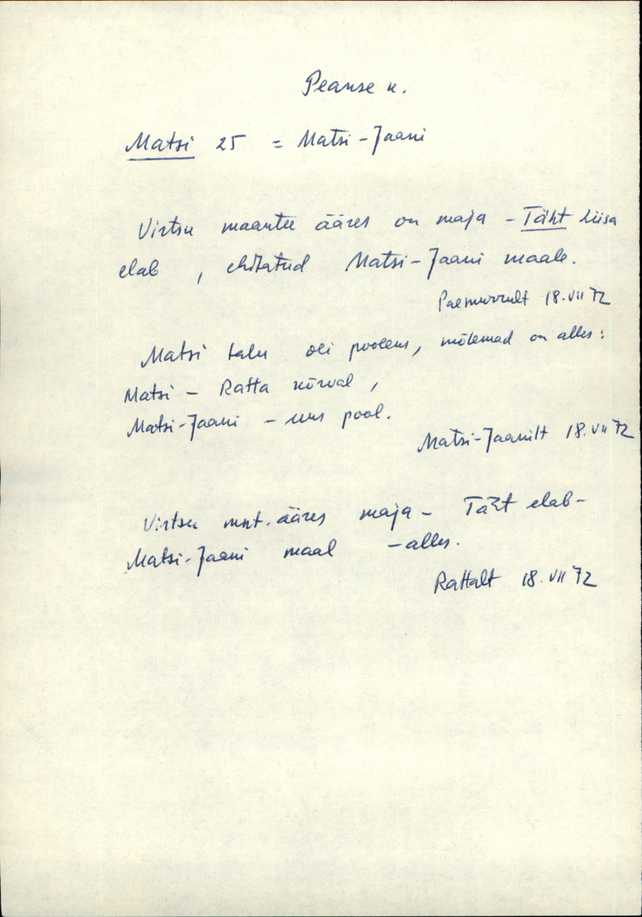 Peanse k.
Matsi 25 = Matsi-Jaani
Virtsu maantee ääres on maja - Täht Liisa
elab, ehitatud Matsi-Jaani maale.
Paemurrult 18.VII 72
Matsi talu oli pooleks, mõlemad on alles:
Matsi - Ratta kõrval,
Matsi-Jaani - uus pool.
Matsi-Jaanilt 18.VII 72
Virtsu mnt. ääres maja - Täht elab -
Matsi-Jaani maal - alles.
Rattalt 18.VII 72